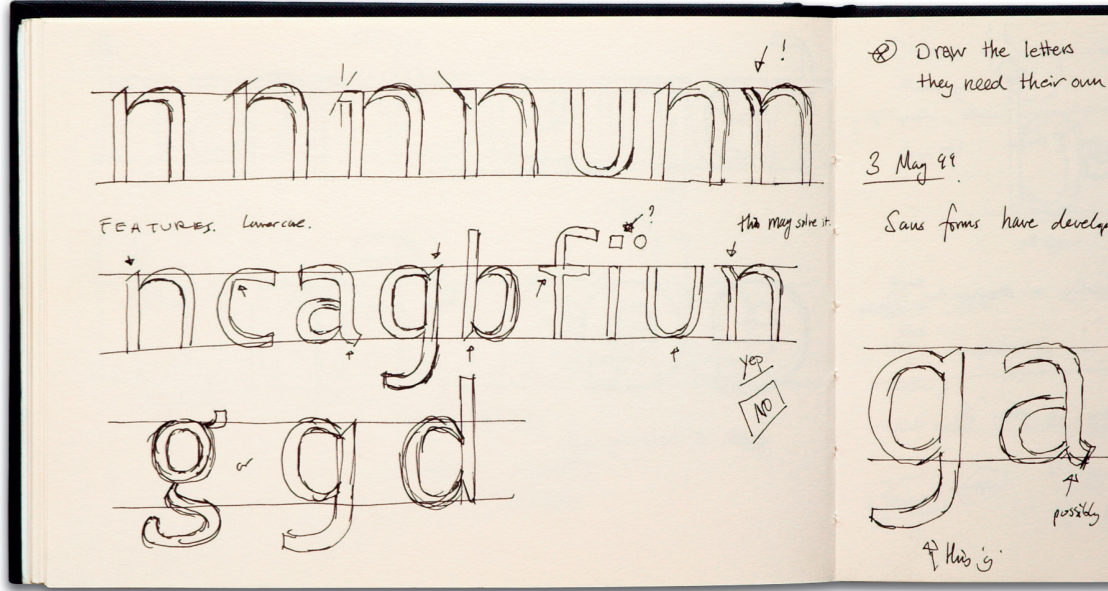 n n n n u n n
!
FEATURES. Lowercase.
this may solve it.
?
n c a g b f i i u n
yep
NO
g or g d
⊛ Draw the letters
they need their own
3 May 99.
Sans forms have develop
g a
possibly
this 'g'